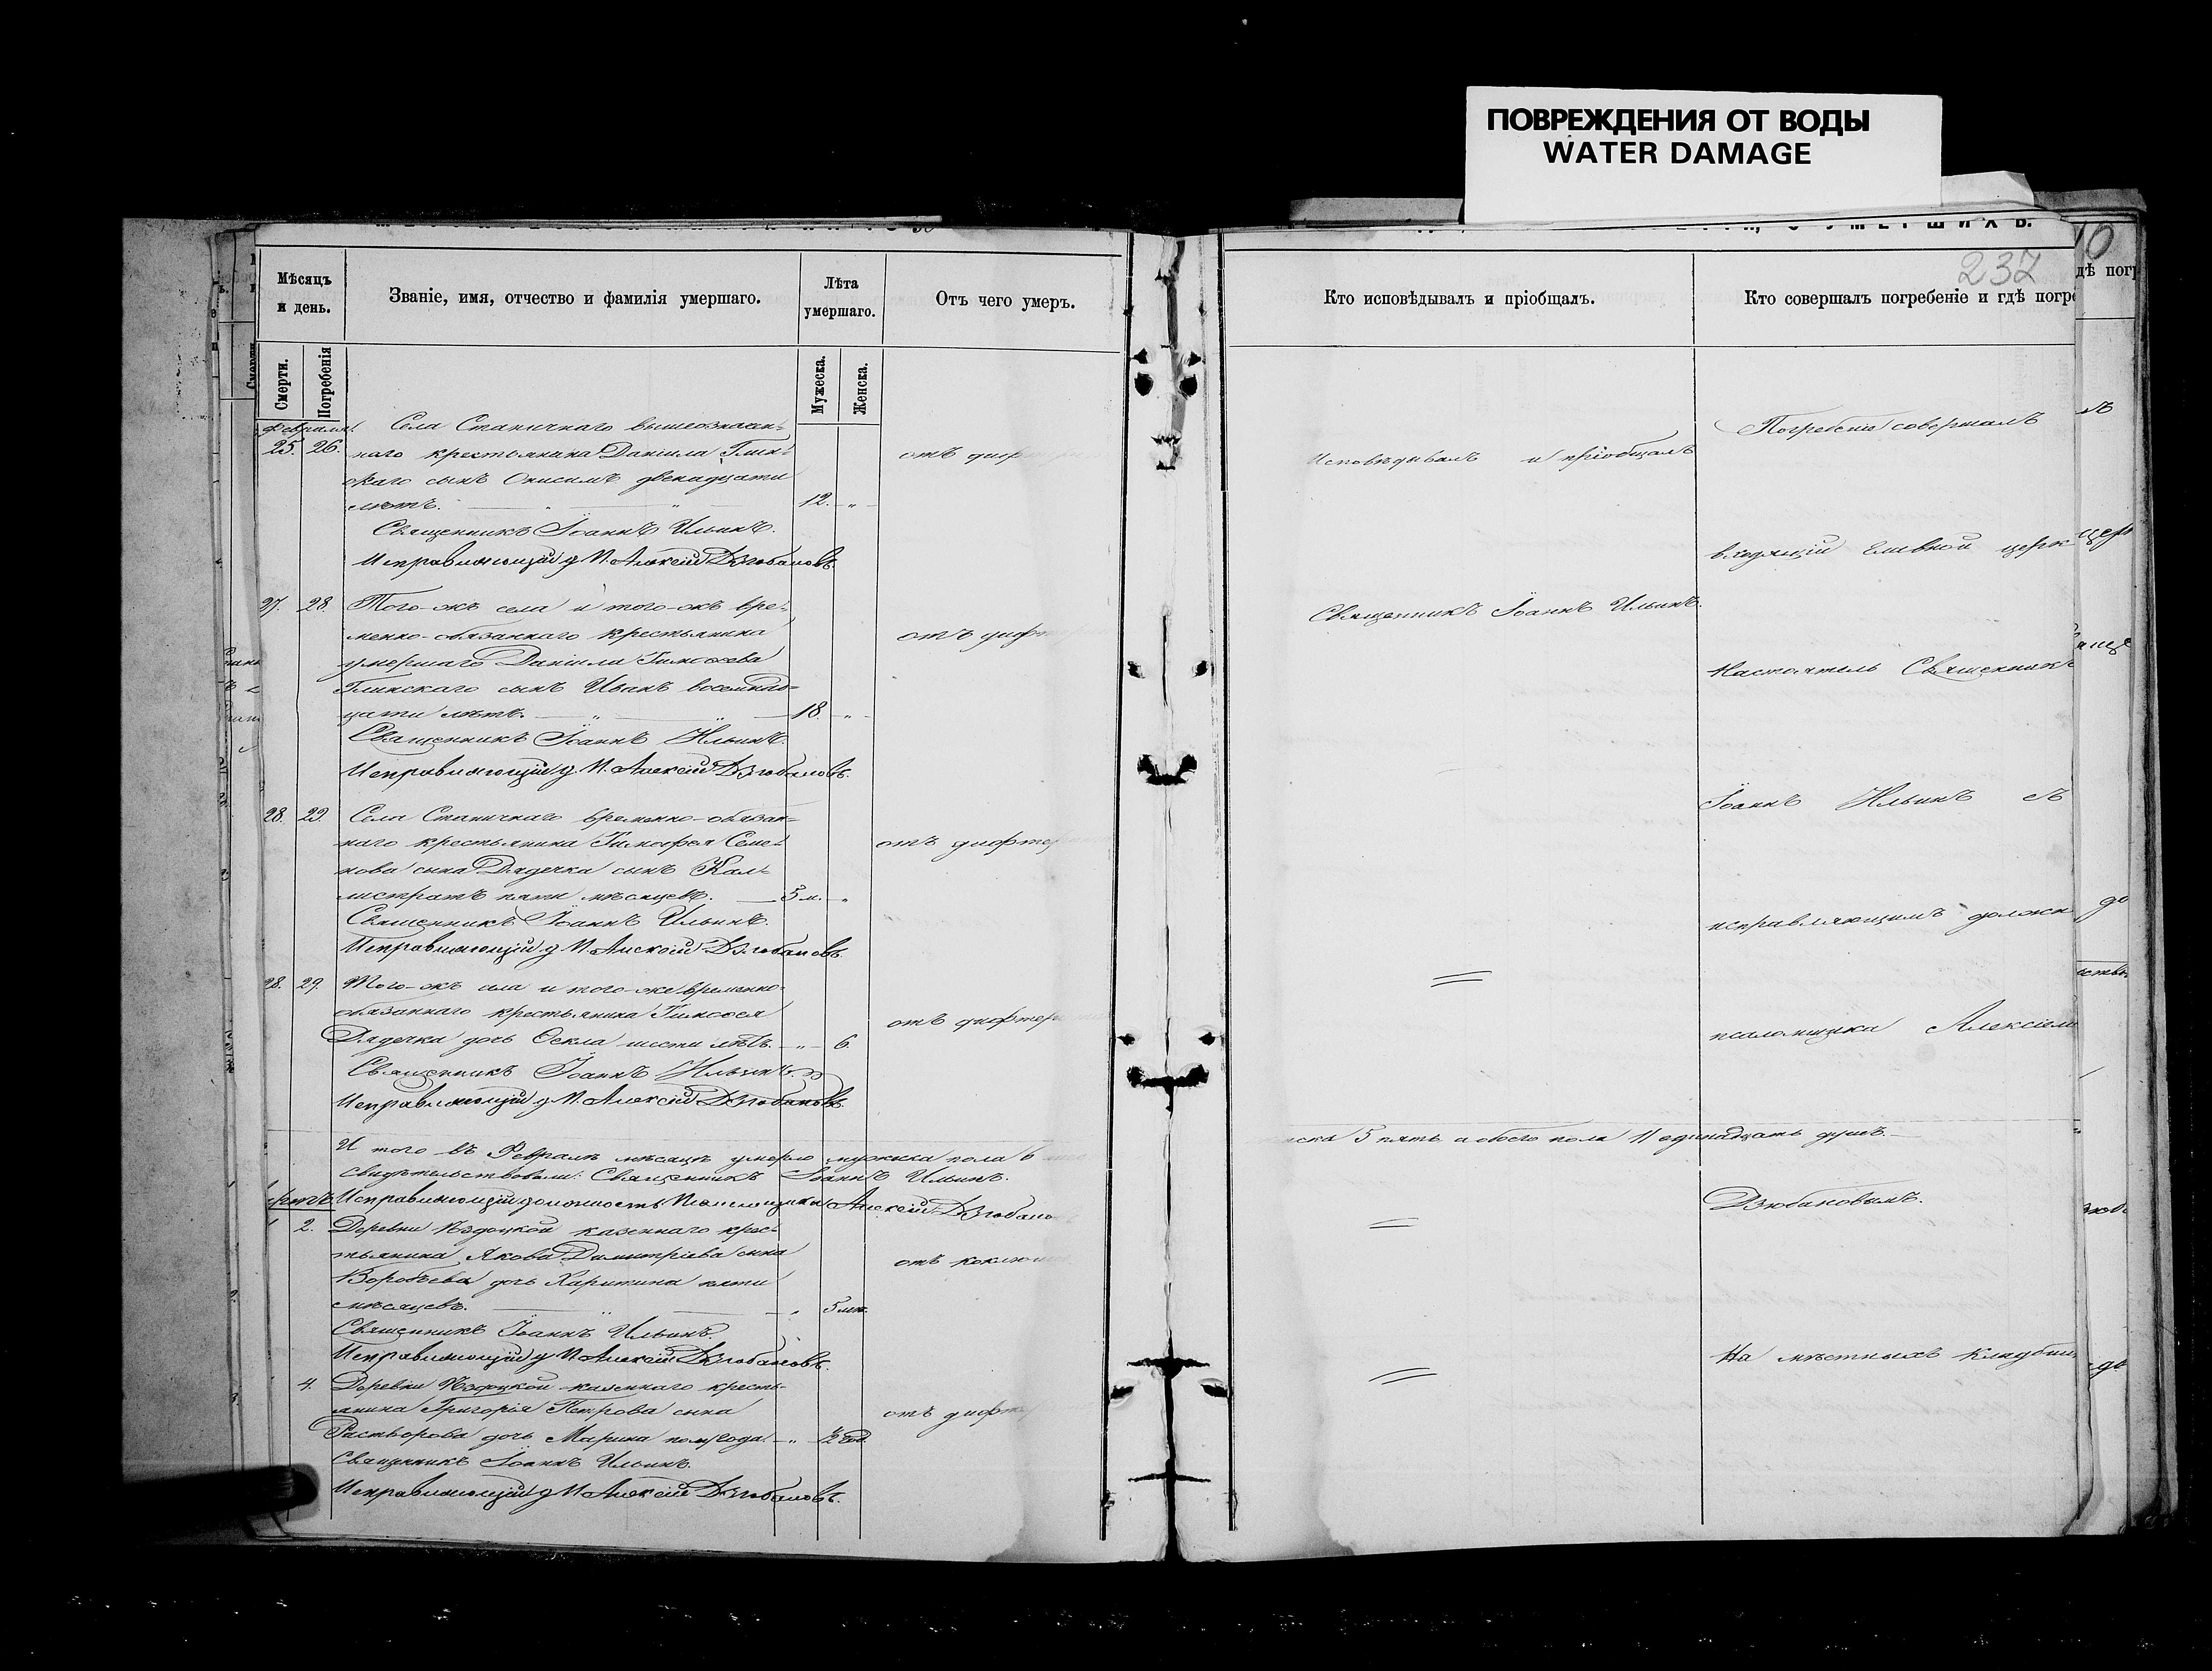 ПОВРЕЖДЕНИЯ ОТ ВОДЫ
WATER DAMAGE
237
10
Мѣсяцъ и день.
Званіе, имя, отчество и фамилія умершаго.
Лѣта умершаго.
Отъ чего умеръ.
Смерти.
Погребенія
Мужеска.
Женска.
Февраля
25. 26. Села Станичнаго вышеозначен-
наго крестьянина Даніила Глин-
скаго сынъ Онисимъ двенадцати
лѣтъ. 12. "
отъ
Священникъ Іоаннъ Ильинъ.
Исправляющій д. П. Алексій Дзюбановъ.
27. 28. Того-жъ села и того-жъ вре-
менно-обязаннаго крестьянина
умершаго Даніила Тимоѳеева
Глинскаго сынъ Иванъ восемнад-
цати лѣтъ. 18. "
отъ
Священникъ Іоаннъ Ильинъ.
Исправляющій д. П. Алексій Дзюбановъ.
28. 29. Села Станичнаго временно-обязан-
наго крестьянина Тимоѳея Семе-
нова сына Дядечка сынъ Кал-
листратъ пяти мѣсяцевъ. 5 м. "
отъ
Священникъ Іоаннъ Ильинъ.
Исправляющій д. П. Алексій Дзюбановъ.
28. 29. Того-жъ села и того-же временно-
обязаннаго крестьянина Тимоѳея
Дядечка дочь Ѳекла шести лѣтъ. " 6.
отъ
Священникъ Іоаннъ Ильинъ.
Исправляющій д. П. Алексій Дзюбановъ.
И того въ Февралѣ мѣсяцѣ умерло мужска пола 6
свидѣтельствовали: Священникъ Іоаннъ Ильинъ.
Исправляющій должность Псаломщика Алексій
1 2. Деревни казеннаго крес-
тьянина Якова Димитріева сына
Воробьева дочь Харитина пяти
мѣсяцевъ. " 5 мѣ.
отъ
Священникъ Іоаннъ Ильинъ.
Исправляющій д. П. Алексій Дзюбановъ.
4. Деревни казеннаго кресть-
янина Григорія Петрова сына
дочь Марина полугода. " ½ год.
отъ
Священникъ Іоаннъ Ильинъ.
Исправляющій д. П. Алексій Дзюбановъ.
Кто исповѣдывалъ и пріобщалъ.
Кто совершалъ погребеніе и гдѣ погре
Исповѣдывалъ и пріобщалъ
Священникъ Іоаннъ Ильинъ.
5 пять а обоего пола 11 одинадцать душъ.
Погребеніе совершалъ
церк
Настоятель Священникъ
Іоаннъ Ильинъ съ
исправляющимъ должн
псаломщика Алексіемъ
Дзюбановымъ.
На мѣстныхъ кладбищ